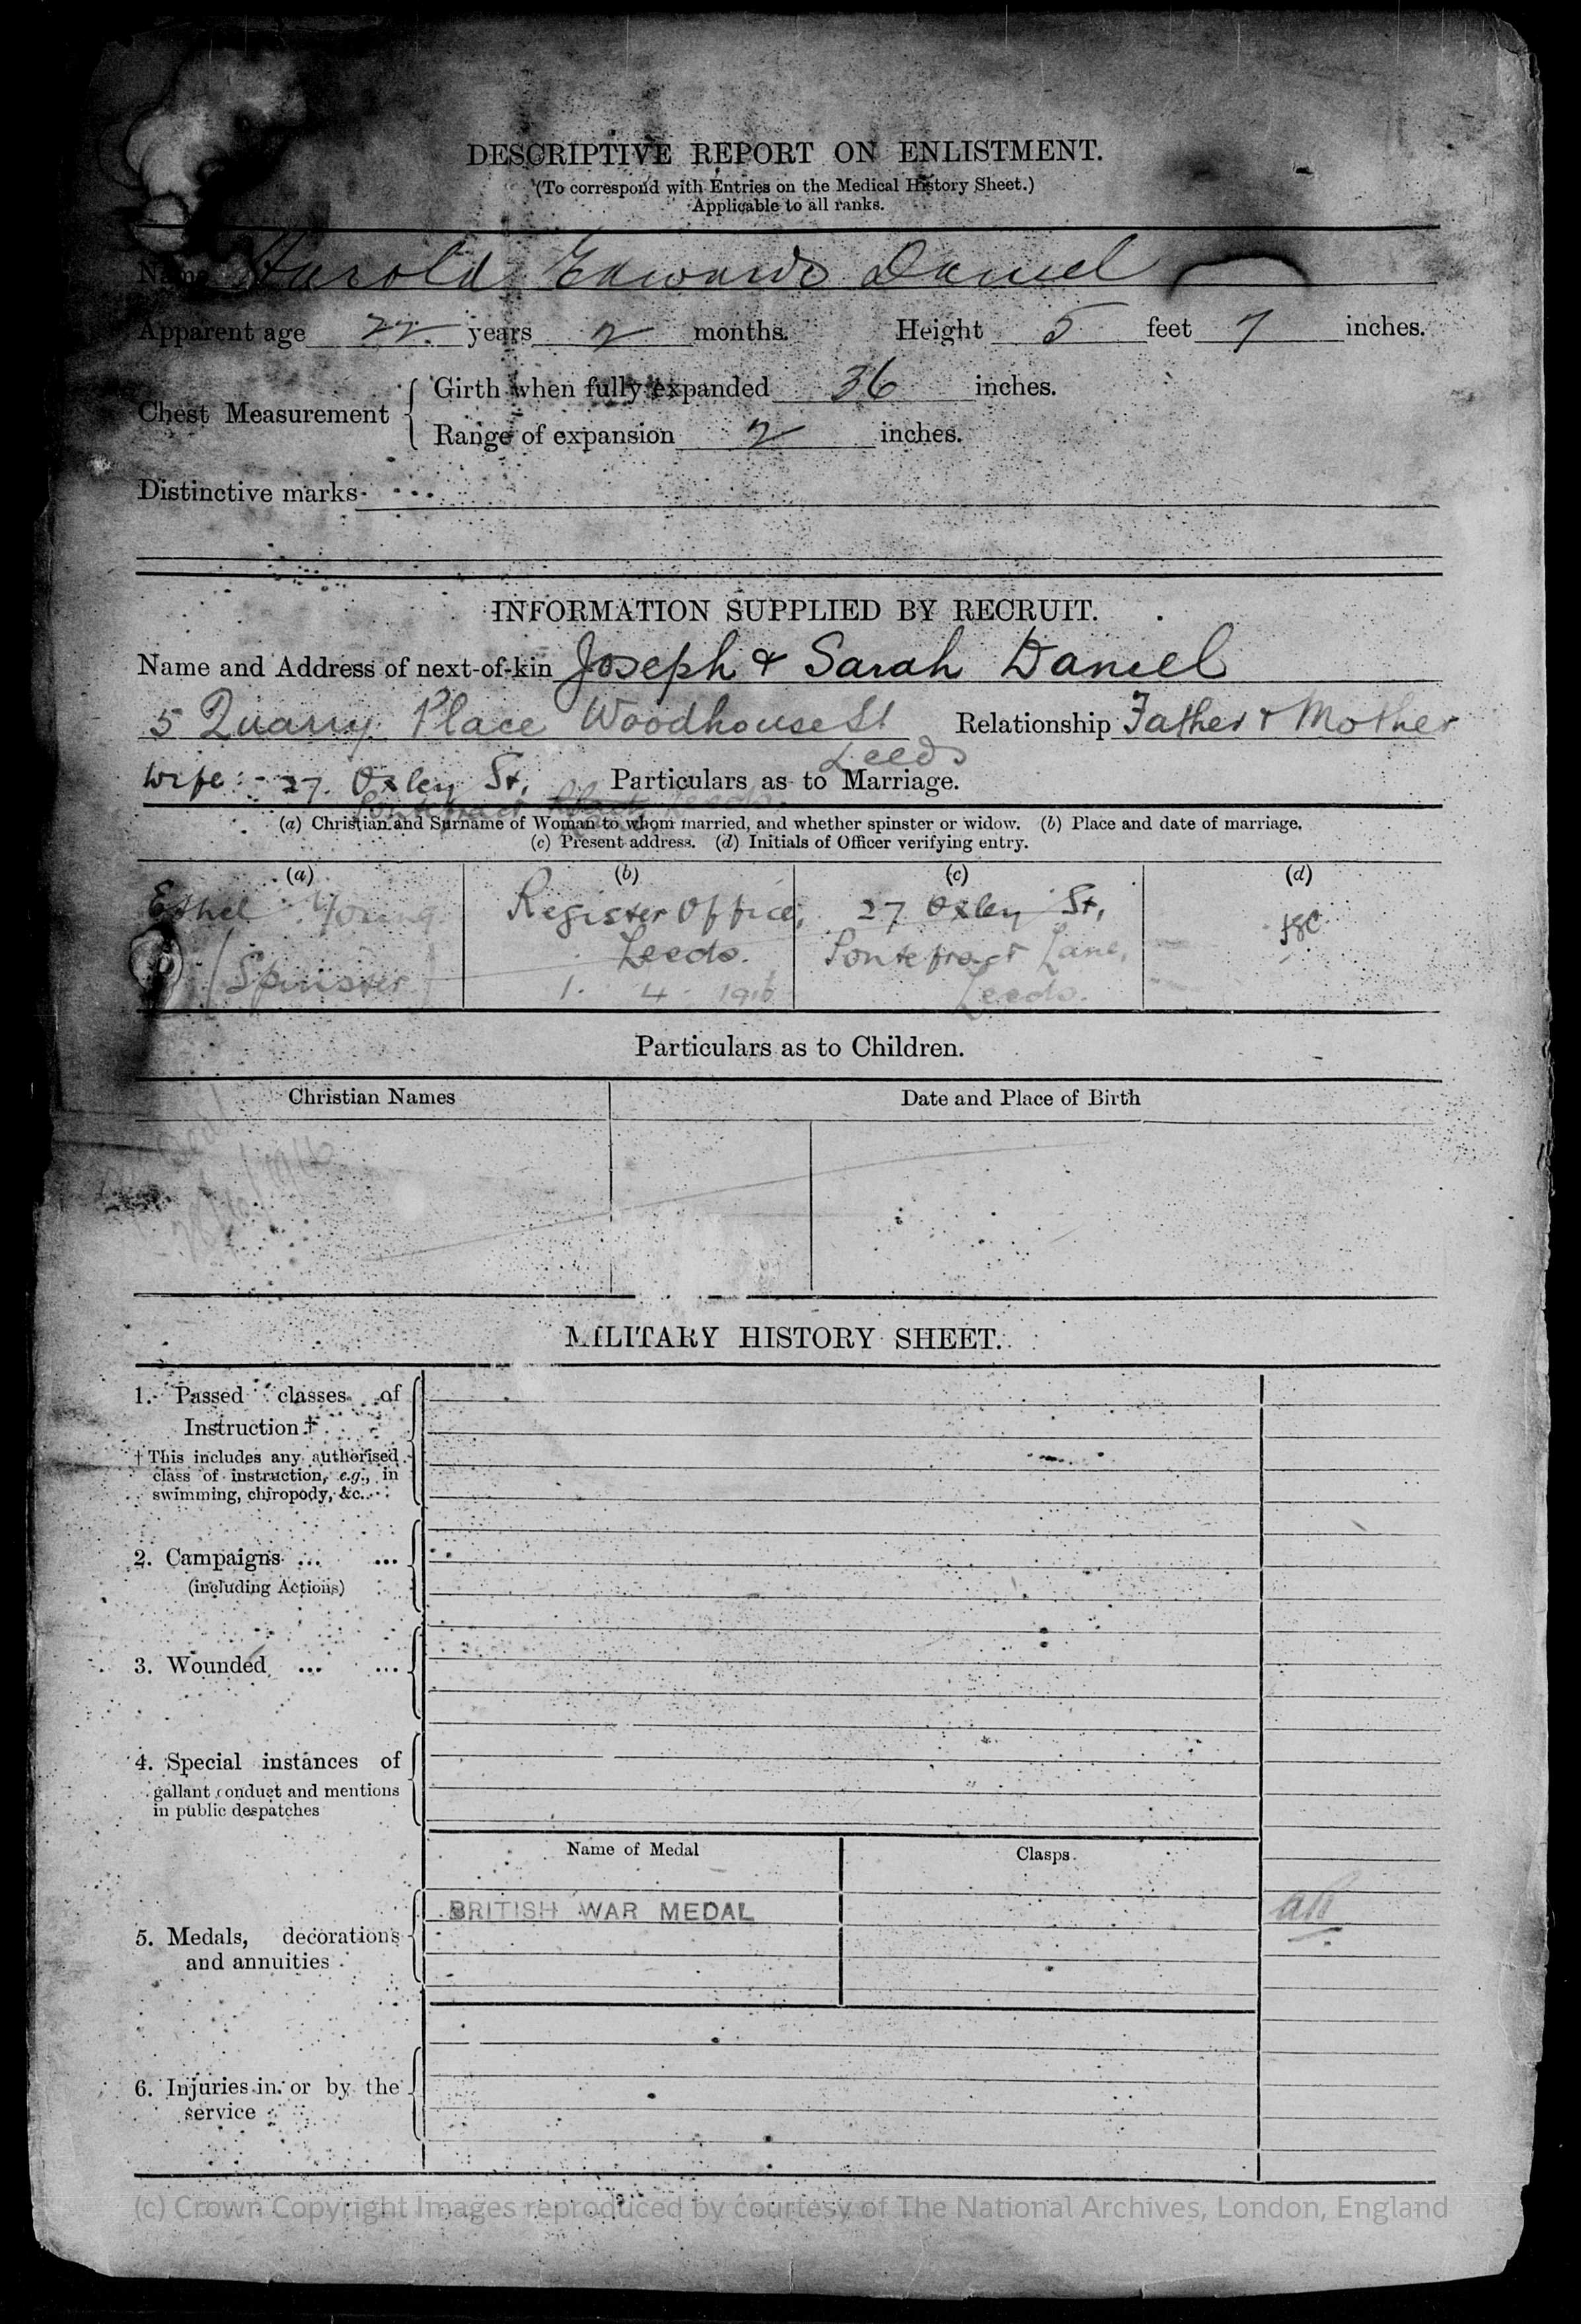 DESCRIPTIVE REPORT ON ENLISTMENT.
(To correspond with Entries on the Medical History Sheet.)
Applicable to all ranks.
Name Harold Edwards Daniel
Apparent age 22 years 2 months. Height 5 feet 7 inches.
Chest Measurement
Girth when fully expanded 36 inches.
Range of expansion 2 inches.
Distinctive marks
INFORMATION SUPPLIED BY RECRUIT.
Name and Address of next-of-kin Joseph & Sarah Daniel
5 Quarry Place Woodhouse St Relationship Father & Mother
Leeds
Wife:- 27. Oxley St, Particulars as to Marriage.
Pontefract Leeds.
(a) Christian and Surname of Woman to whom married, and whether spinster or widow. (b) Place and date of marriage.
(c) Present address. (d) Initials of Officer verifying entry.
(a) (b) (c) (d)
Ethel Young Register Office, 27 Oxley St,
(Spinster) Leeds. Pontefract Lane,
1. 4. 1916 Leeds.
Particulars as to Children.
Christian Names Date and Place of Birth
MILITARY HISTORY SHEET.
1. Passed classes of
Instruction †
† This includes any authorised
class of instruction, e.g., in
swimming, chiropody, &c.
2. Campaigns ... ...
(including Actions)
3. Wounded ... ...
4. Special instances of
gallant conduct and mentions
in public despatches
Name of Medal Clasps.
BRITISH WAR MEDAL
5. Medals, decorations
and annuities
6. Injuries in or by the
service
(c) Crown Copyright Images reproduced by courtesy of The National Archives, London, England